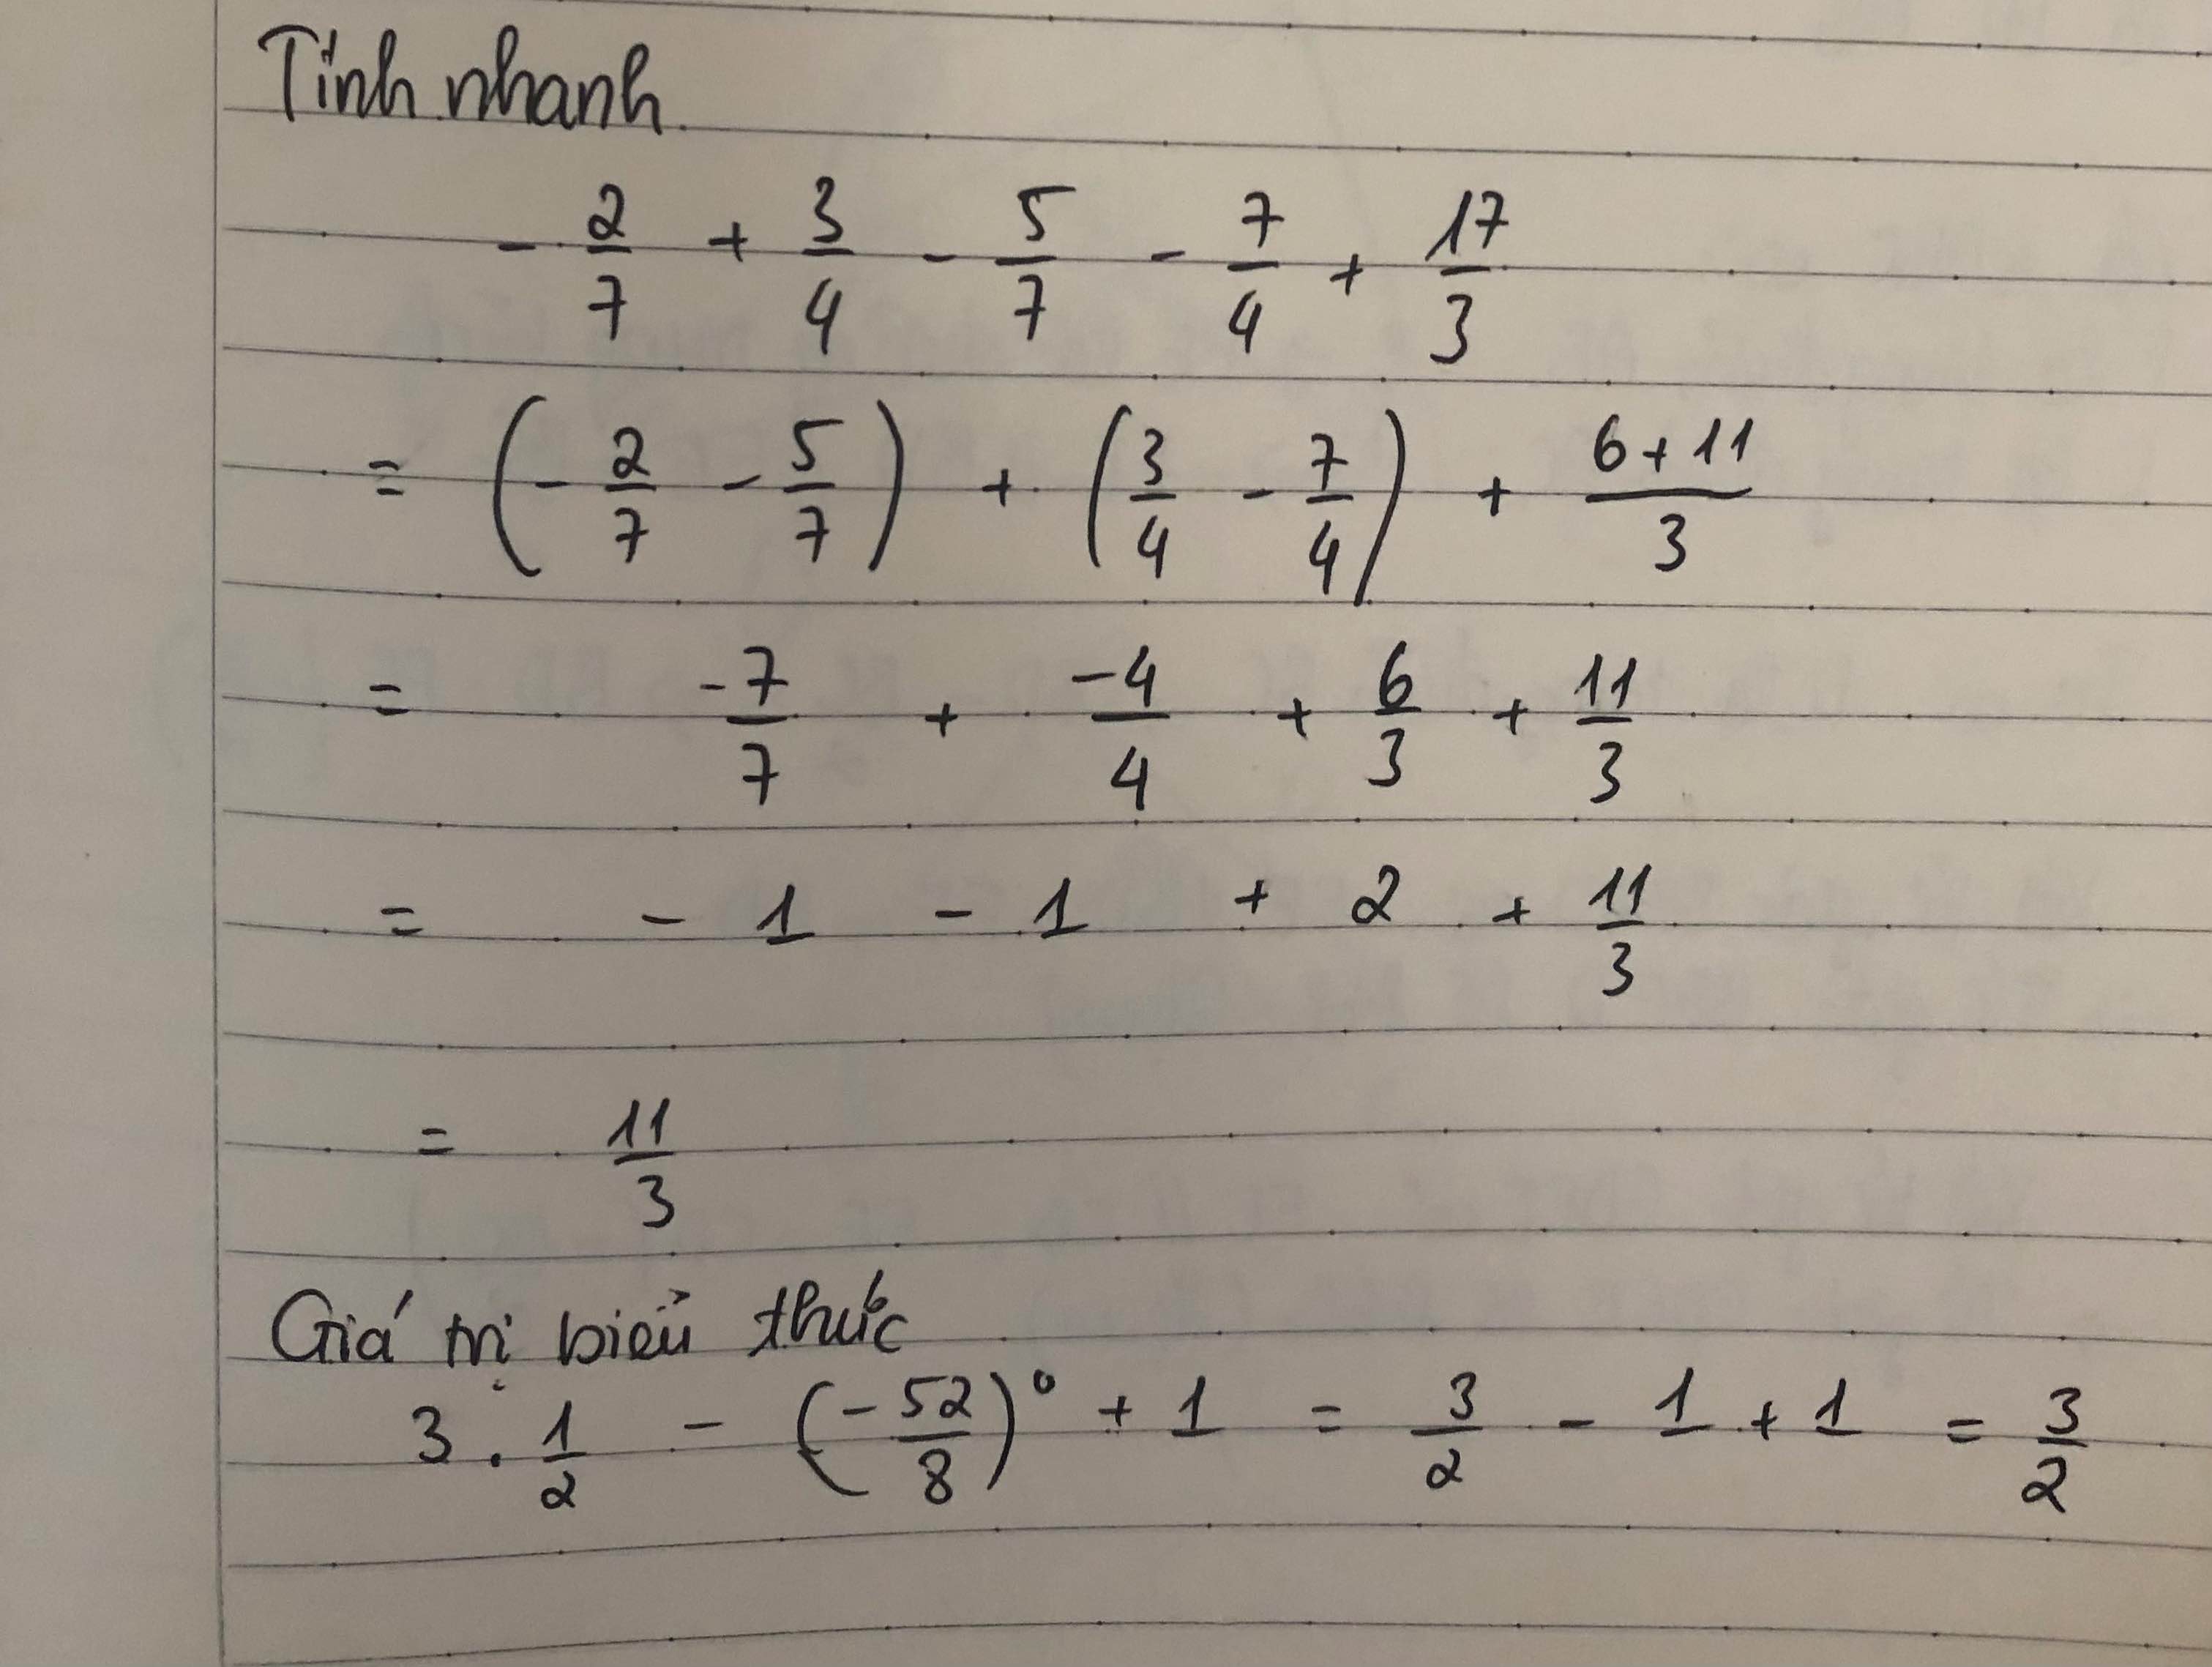 Tính nhanh
- 2/7 + 3/4 - 5/7 - 7/4 + 17/3
= (- 2/7 - 5/7) + (3/4 - 7/4) + (6+11)/3
= -7/7 + -4/4 + 6/3 + 11/3
= - 1 - 1 + 2 + 11/3
= 11/3
Giá trị biểu thức
3 . 1/2 - (-52/8)⁰ + 1 = 3/2 - 1 + 1 = 3/2